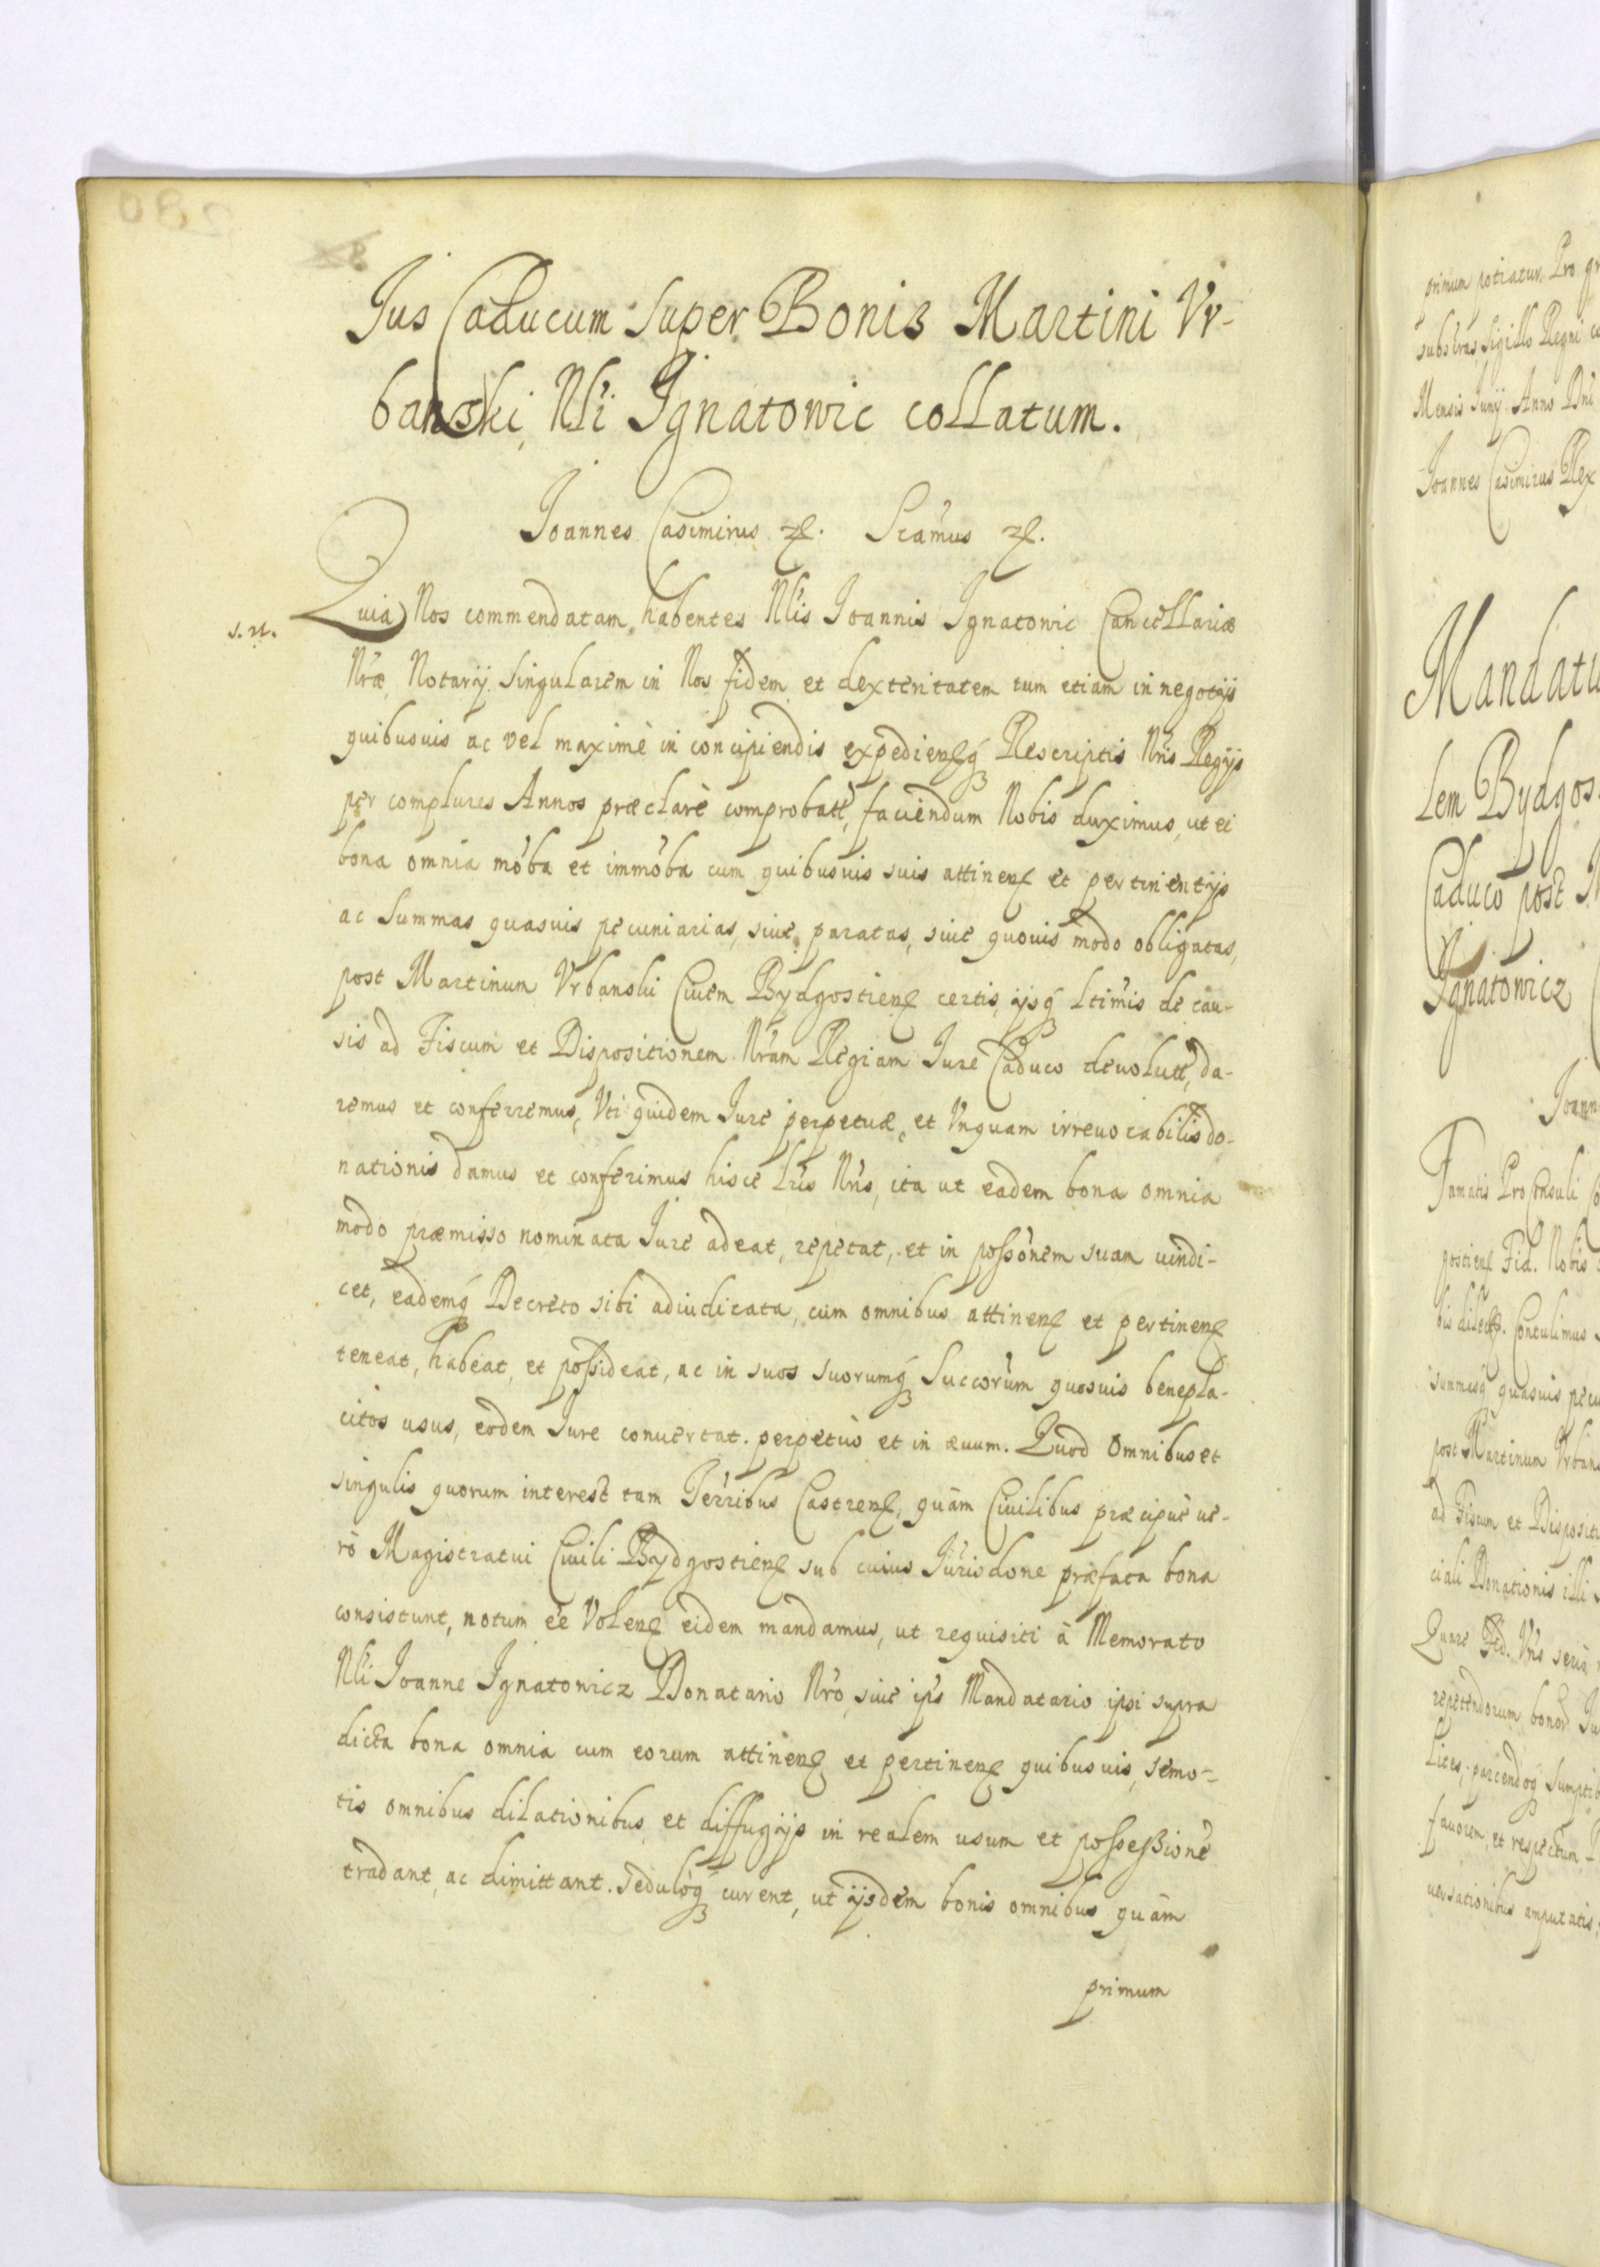 Jus Caducum super Bonis Martini Vr-
banski Nli Ignatowic collatum.
Joannes Casimirus etc. Scamus etc.
s. n.
Quia Nos commendatam habentes Nlis Joannis Ignatowic Cancellariæ
Nræ Notarÿ singularem in Nos fidem et dexteritatem tum etiam in negotÿs
quibusuis ac vel maximè in concipiendis expedienq́ Rescriptis Nris Regÿs
per complures Annos præclarè comprobatt, faciendum Nobis duximus, ut ei
bona omnia moba et immoba cum quibusuis suis attinen et pertinentÿs
ac summas quasuis pecuniarias, siue paratas, siue quouis modo obligatas,
post Martinum Vrbanski Ciuem Bydgostien certis, ÿsq́ ltimis de cau-
sis ad Fiscum et Dispositionem Nram Regiam Jure Caduco deuolutt, da-
remus et conferremus, Vti quidem Jure perpetuæ et Vnquam irreuocabilis do-
nationis damus et conferimus hisce lris Nris, ita ut eadem bona omnia
modo præmisso nominata Jure adeat, repetat, et in possonem suam uindi-
cet, eademq́ Decreto sibi adiudicata, cum omnibus attinen et pertinen
teneat, habeat, et possideat, ac in suos suorumq́ Succorum quosuis benepla-
citos usus, eodem Jure conuertat. perpetuò et in æuum. Quod Omnibus et
singulis quorum interest tam Terribus Castren, quàm Ciuilibus præcipuè ue-
rò Magistratui Ciuili Bydgostien sub cuius Jurisdone præfata bona
consistunt, notum ee Volen eidem mandamus, ut requisiti à Memorato
Nli Joanne Ignatowicz Donatario Nro, siue ips Mandatario ipsi supra
dicta bona omnia cum eorum attinen et pertinen quibusuis, semo-
tis omnibus dilationibus et diffugÿs in realem usum et possessionē
tradant, ac dimittant. sedulòq́ curent, ut ÿsdem bonis omnibus quàm
primum
primum potiatur. Pro
subscras, Sigillo Regni
Mensis Junÿ Anno Dni
Joannes Casimirus Rex
Mandatu
lem Bydgos
Caduco post
Ignatowicz
Joann
Famatis Pro Consuli
gostien Fid. Nobis
bis dilect. Contulimus
summasq́ quasuis pecu
post Martinum Vrban
ad Fiscum et Dispositi
ciali Donationis illi
Quare Fid. Vris seriò
repetendorum bonor Ju
Lites, parcendoq́ sumptib
fauorem, et respectum
uersationibus amputatis,